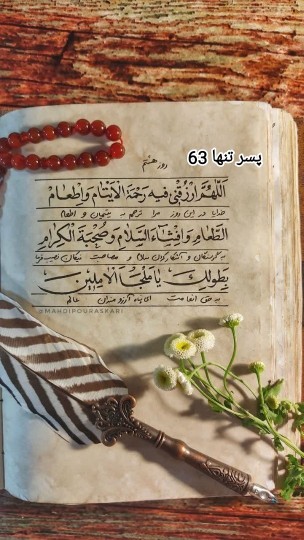 پسر تنها 63
روز هشتم
اَللّهُمَّ ارْزُقْنی فیهِ رَحْمَةَ الْاَیْتامِ وَاِطْعامَ
خدایا در این روز مرا ترحم به یتیمان و اطعام
الطَّعامِ وَاِفْشاءَ السَّلامِ وَصُحْبَةَ الْکِرامِ
به گرسنگان و آشکار کردن سلام و مصاحبت نیکان نصیب فرما
بِطَوْلِکَ یا مَلْجَاَ الْآمِلینَ
به حق انعامت ای پناه آرزومندان عالم
@MAHDIPOURASKARI